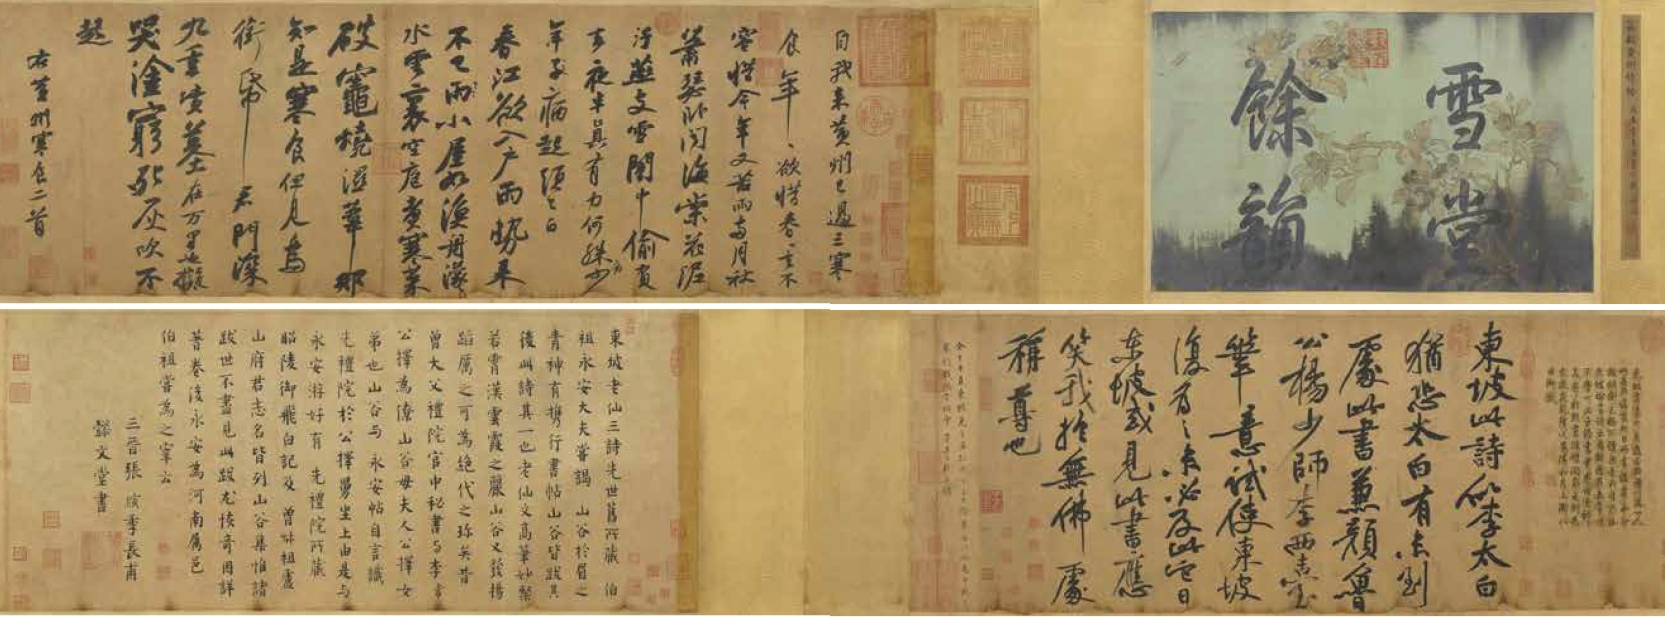 雪堂
餘韻
自我來黃州已過三寒
食年、欲惜春、去不
容惜今年又苦雨兩月秋
蕭瑟卧聞海棠花泥
汙燕支雪闇中偷負
去夜半真有力何殊少
年子病起須已白
春江欲入戶雨勢來
不已雨小屋如漁舟濛
水雲裏空庖煮寒菜
破竈燒濕葦那
知是寒食但見烏
銜帋君門深
九重墳墓在万里也擬
哭塗窮死灰吹不
起
右黃州寒食二首
東坡此詩似李太白
猶恐太白有未到
處此書兼顏魯
公楊少師李西臺
筆意試使東坡
復為之未必及此它日
東坡或見此書應
笑我於無佛處
稱尊也
東坡老仙三詩先世舊所藏 伯
祖永安大夫嘗謁 山谷於眉之
青神有攜行書帖山谷皆跋其
後此詩其一也老仙文高筆妙粲
若霄漢雲霞之麗山谷又發揚
蹈厲之可為絕代之珍矣昔
曾大父禮院官中秘書与李常
公擇為僚山谷母夫人公擇女
弟也山谷与永安帖自言識
先禮院於公擇舅坐上由是与
永安游好有 先禮院所藏
昭陵御飛白記及 曾叔祖盧
山府君志名皆列山谷集惟諸
跋世不盡見此跋尤恢奇因詳
著卷後永安為河南屬邑
伯祖嘗為之宰云
三晉張縯季長甫
懿文堂書